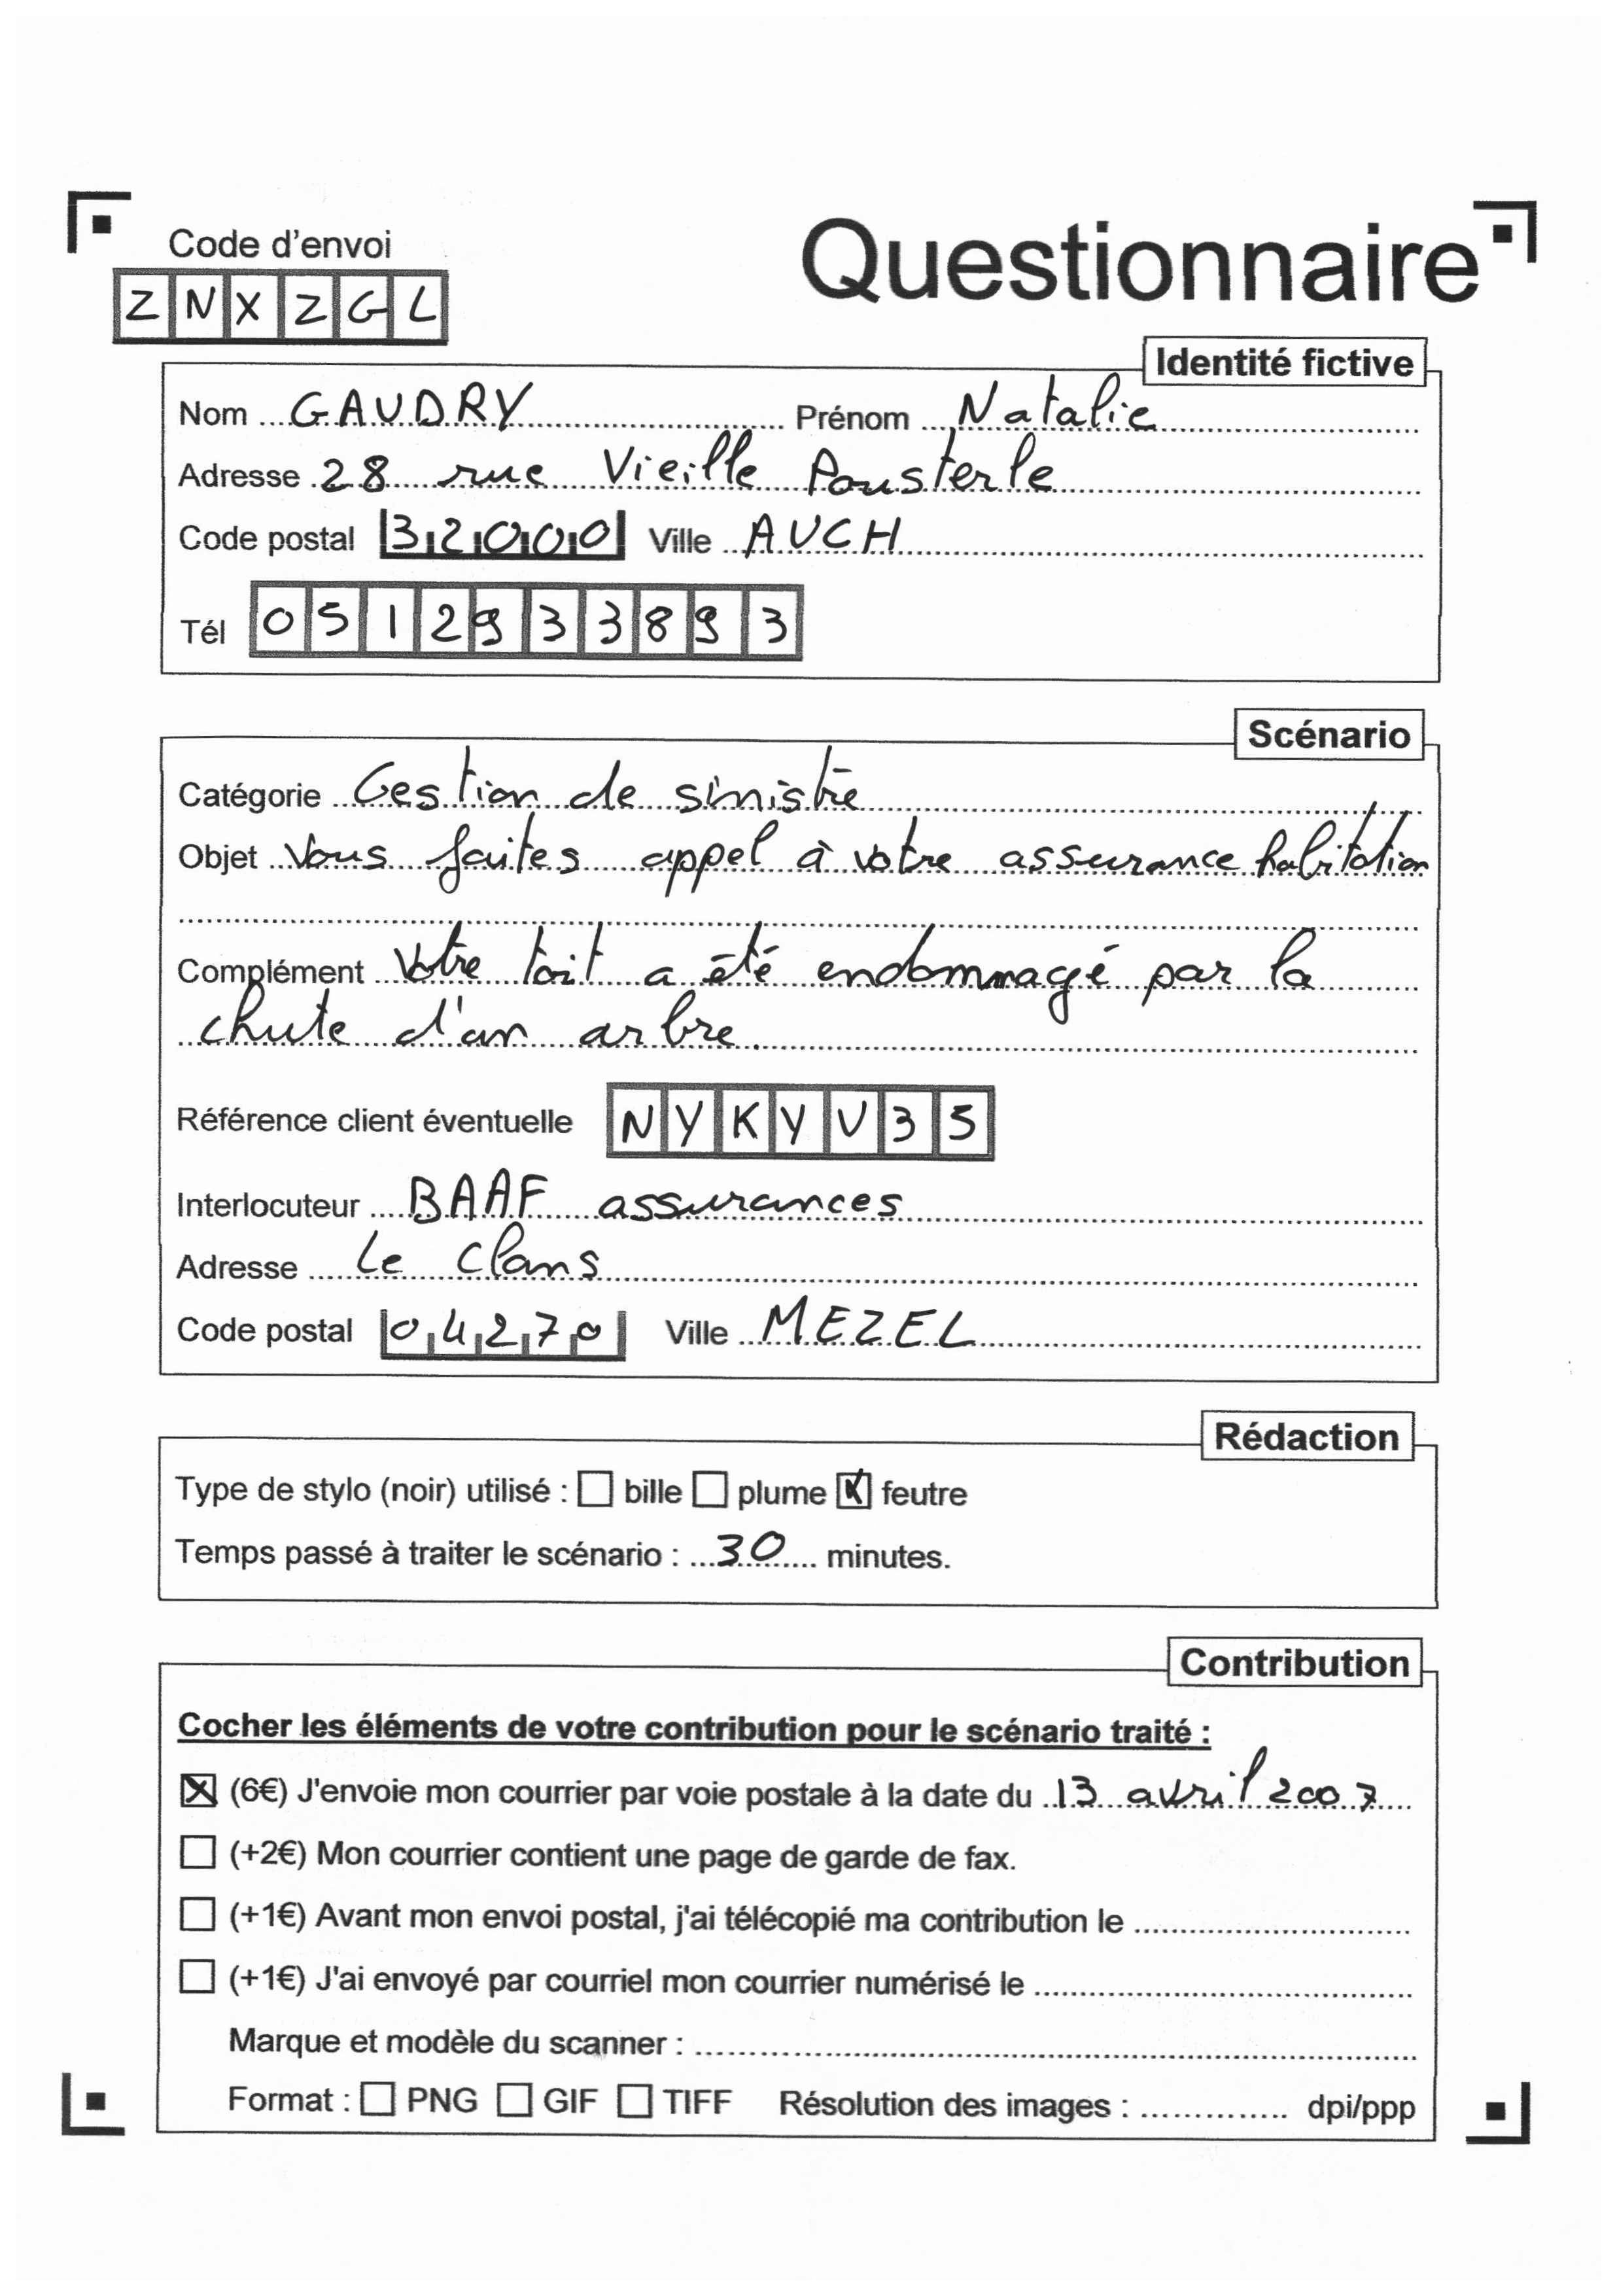 Code d'envoi
Questionnaire
ZNXZGL
Identité fictive
Nom GAUDRY Prénom Natalie
Adresse 28 rue Vieille Pousterle
Code postal 32000 Ville AUCH
Tél 0512933893
Scénario
Catégorie Gestion de sinistre
Objet Vous faites appel à votre assurance habitation
Complément Votre toit a été endommagé par la
chute d'un arbre.
Référence client éventuelle NYKYV35
Interlocuteur BAAF assurances
Adresse Le Clans
Code postal 04270 Ville MEZEL
Rédaction
Type de stylo (noir) utilisé : bille plume feutre
Temps passé à traiter le scénario : 30 minutes.
Contribution
Cocher les éléments de votre contribution pour le scénario traité :
(6€) J'envoie mon courrier par voie postale à la date du 13 avril 2007
(+2€) Mon courrier contient une page de garde de fax.
(+1€) Avant mon envoi postal, j'ai télécopié ma contribution le
(+1€) J'ai envoyé par courriel mon courrier numérisé le
Marque et modèle du scanner :
Format : PNG GIF TIFF Résolution des images : dpi/ppp